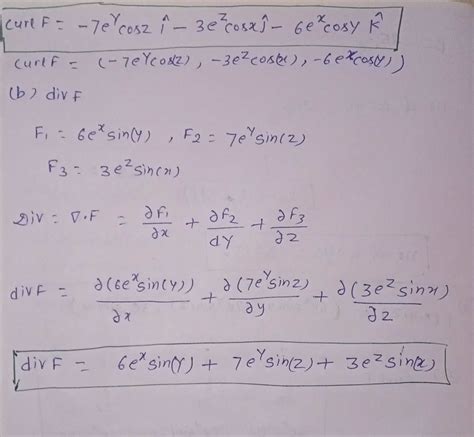 curl F = -7e^y cosz î - 3e^z cosx ĵ - 6e^x cosy k̂
curl F = (-7e^y cos(z), -3e^z cos(x), -6e^x cos(y))
(b) div F
F₁ = 6e^x sin(y) , F₂ = 7e^y sin(z)
F₃ = 3e^z sin(x)
Div = ∇·F = ∂F₁/∂x + ∂F₂/dy + ∂F₃/∂z
div F = ∂(6e^x sin(y))/∂x + ∂(7e^y sinz)/∂y + ∂(3e^z sinx)/∂z
div F = 6e^x sin(y) + 7e^y sin(z) + 3e^z sin(x)